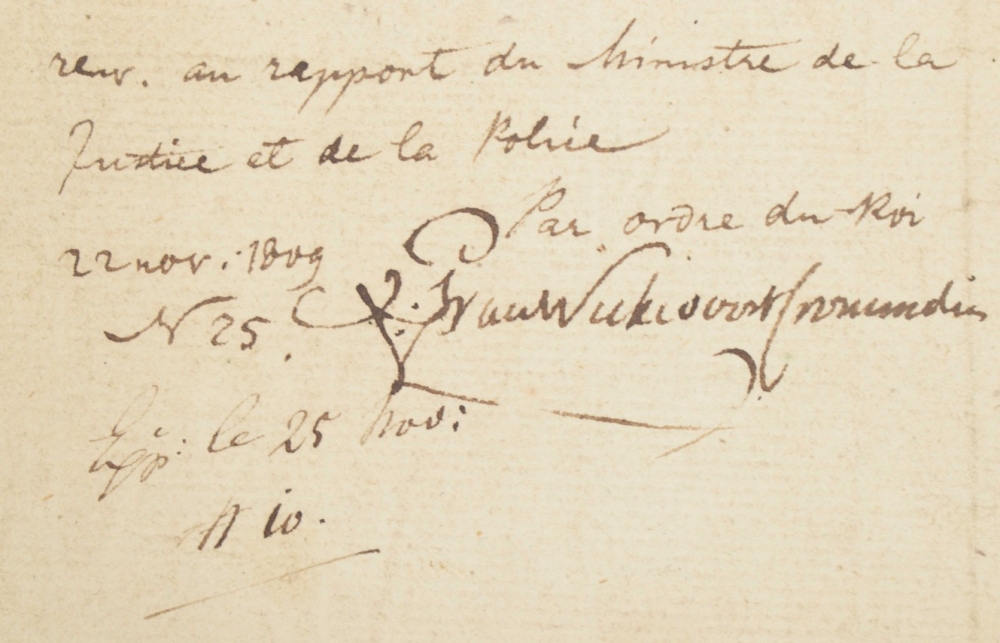 renv. au rapport du Ministre de la
Justice et de la Police
Par ordre du Roi
22 nov: 1809
N 25.
le 25 nov:
N 10.